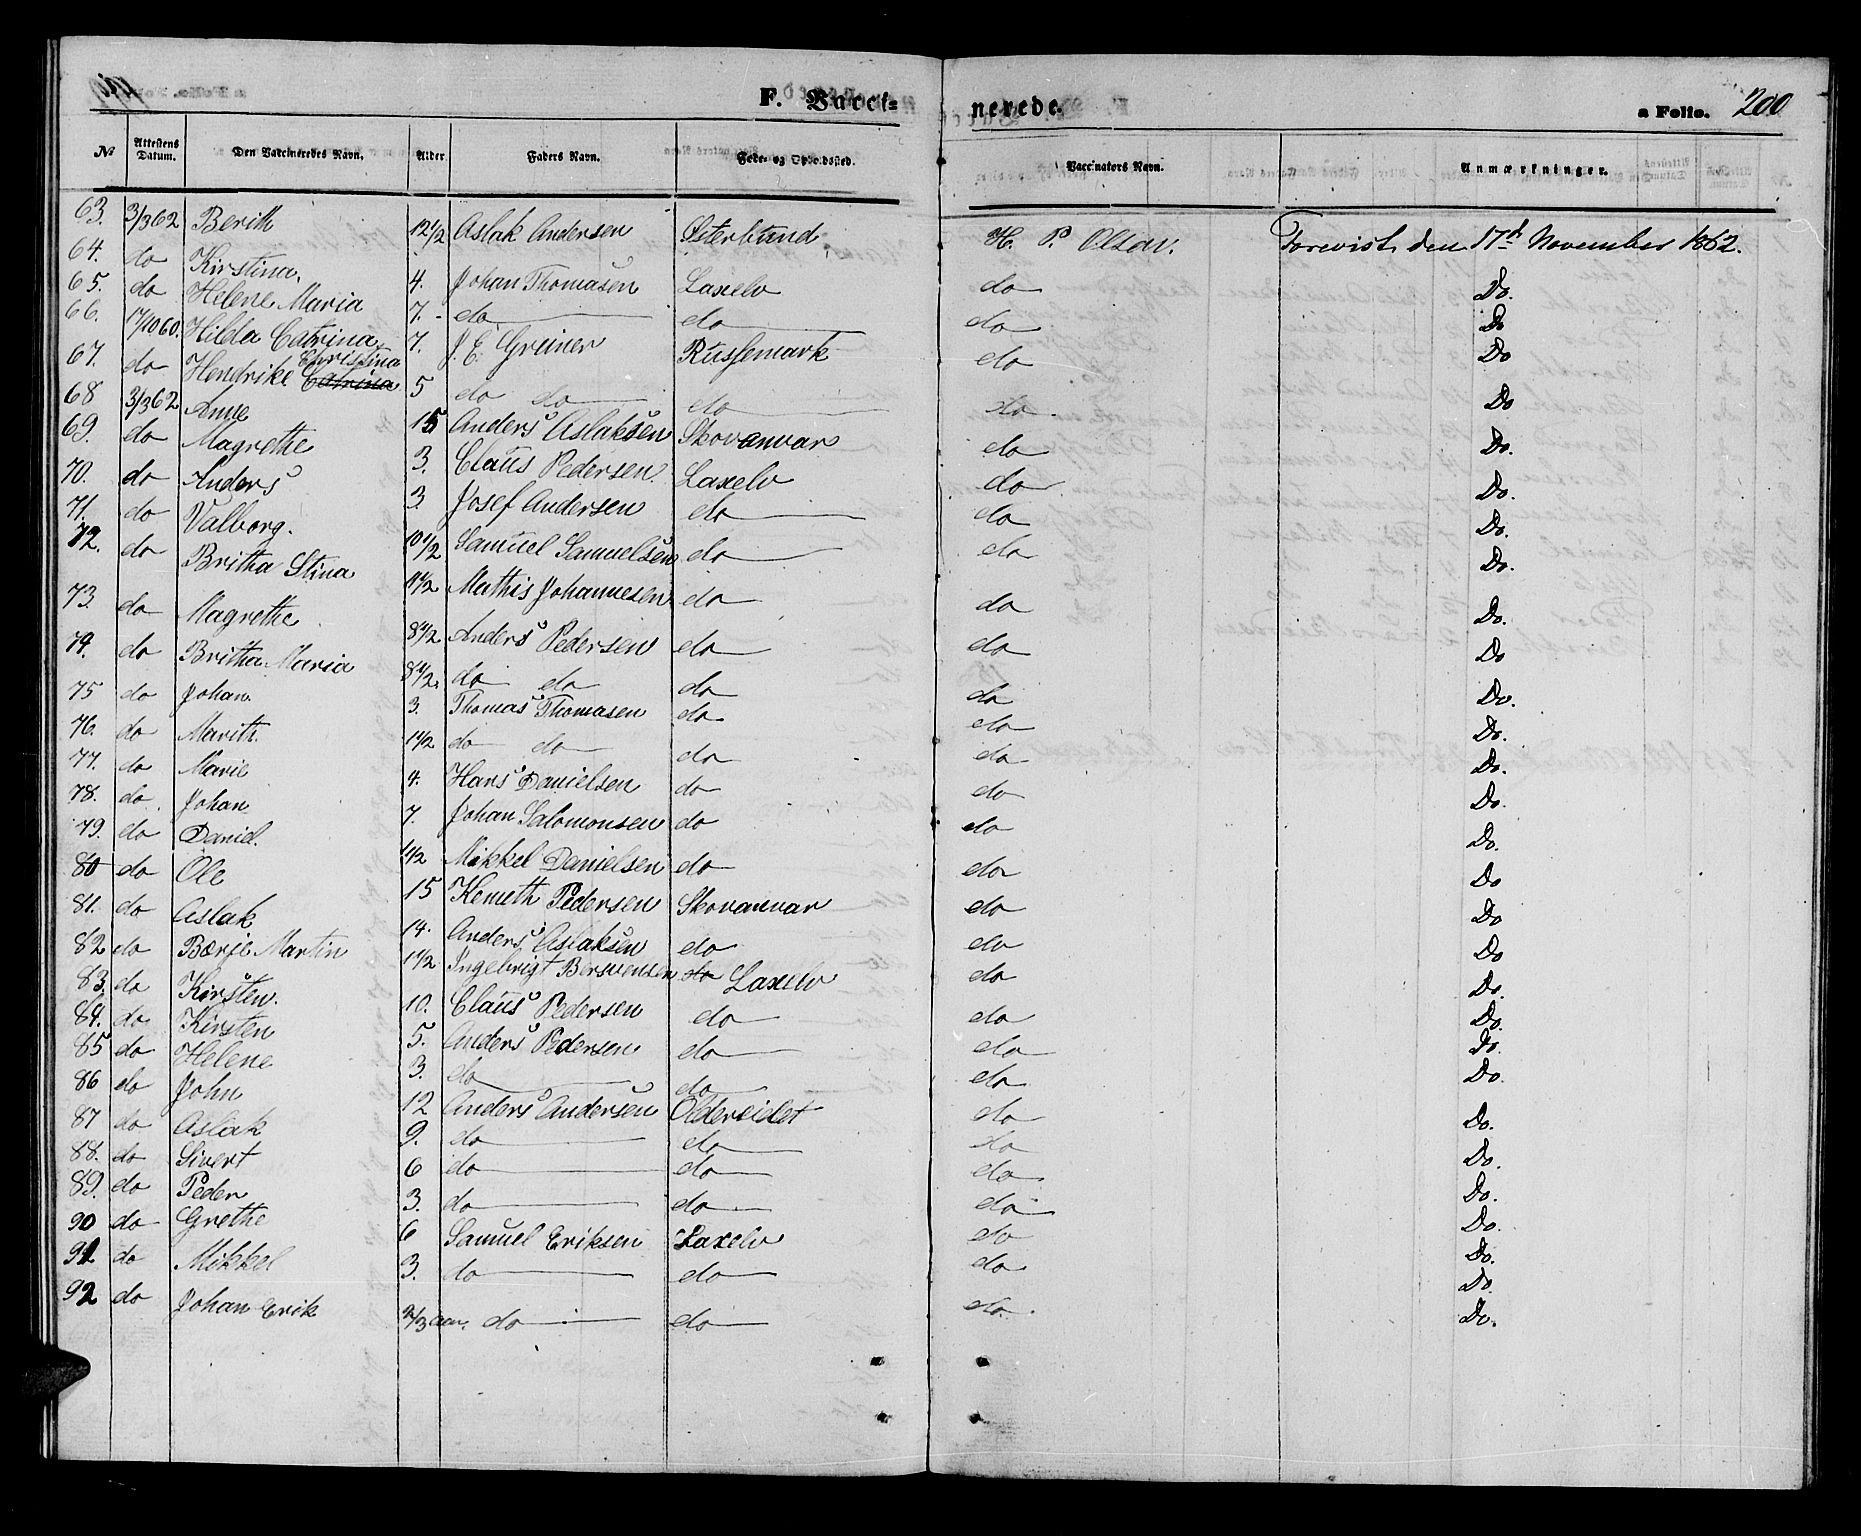 F. Vacci= nerede. a Folio. 200
№ Attestens Datum. Den Vaccineredes Navn. Alder. Faders Navn. Føde- og Opholdssted. Vaccinators Navn. Anmærkninger.
63. 3/3 62 Berith 12 1/2 Aslak Andersen Østerbund H. P. Olsen. Forevist den 17de November 1862.
64. do Kirstina. 4. Johan Thomasen Laxelv do Do.
65. do Helene Maria 7. do do do Do
66. 17/10 60. Hilda Catrina 7. J. E. Greiner Russemark do Do
67. do Hendrike Christina Catrina 5 do do do do Do
68 3/3 62 Anne 15 Anders Aslaksen Skovanvar do Do.
69. do Magrethe 3. Claus Pedersen. Laxelv do Do.
70. do Anders 3. Josef Andersen do do Do.
71. do Valborg. 10 1/2 Samuel Samuelsen do do Do.
72. do Britha Stina 11 1/2 Mathis Johannesen do do Do.
73. do Magrethe 8 1/2 Anders Pedersen do do Do
74. do Britha Maria 8 1/2. do do do do Do.
75 do Johan. 3. Thomas Thomasen do do Do.
76. do Marith. 1 1/2 do do do do Do.
77. do Marie 4. Hans Danielsen do do Do.
78. do. Johan 7. Johan Salomonsen do do Do.
79. do Daniel. 1 1/2 Mikkel Danielsen do do Do
80 do Ole 15 Kemeth Pedersen Skovanvar do Do
81. do Aslak 14. Anders Aslaksen do do Do
82 do Børje Martin 1 1/2 Ingebrigt Bersvensen do Laxelv do Do.
83. do Kirsten. 10. Claus Pedersen do do Do.
84. do. Kirsten 5. Anders Pedersen do do Do.
85 do Helene 3. do do do Do.
86 do John 12 Anders Andersen Oldereidet do Do.
87 do Aslak 9. do do do Do.
88. do Sivert 6 do do do Do.
89. do Peder 3. do do do Do.
90 do Grethe 6 Samuel Eriksen Laxelv do Do.
91 do Mikkel 3. do do do Do.
92 do Johan Erik 2/3 aar. do do do. Do.